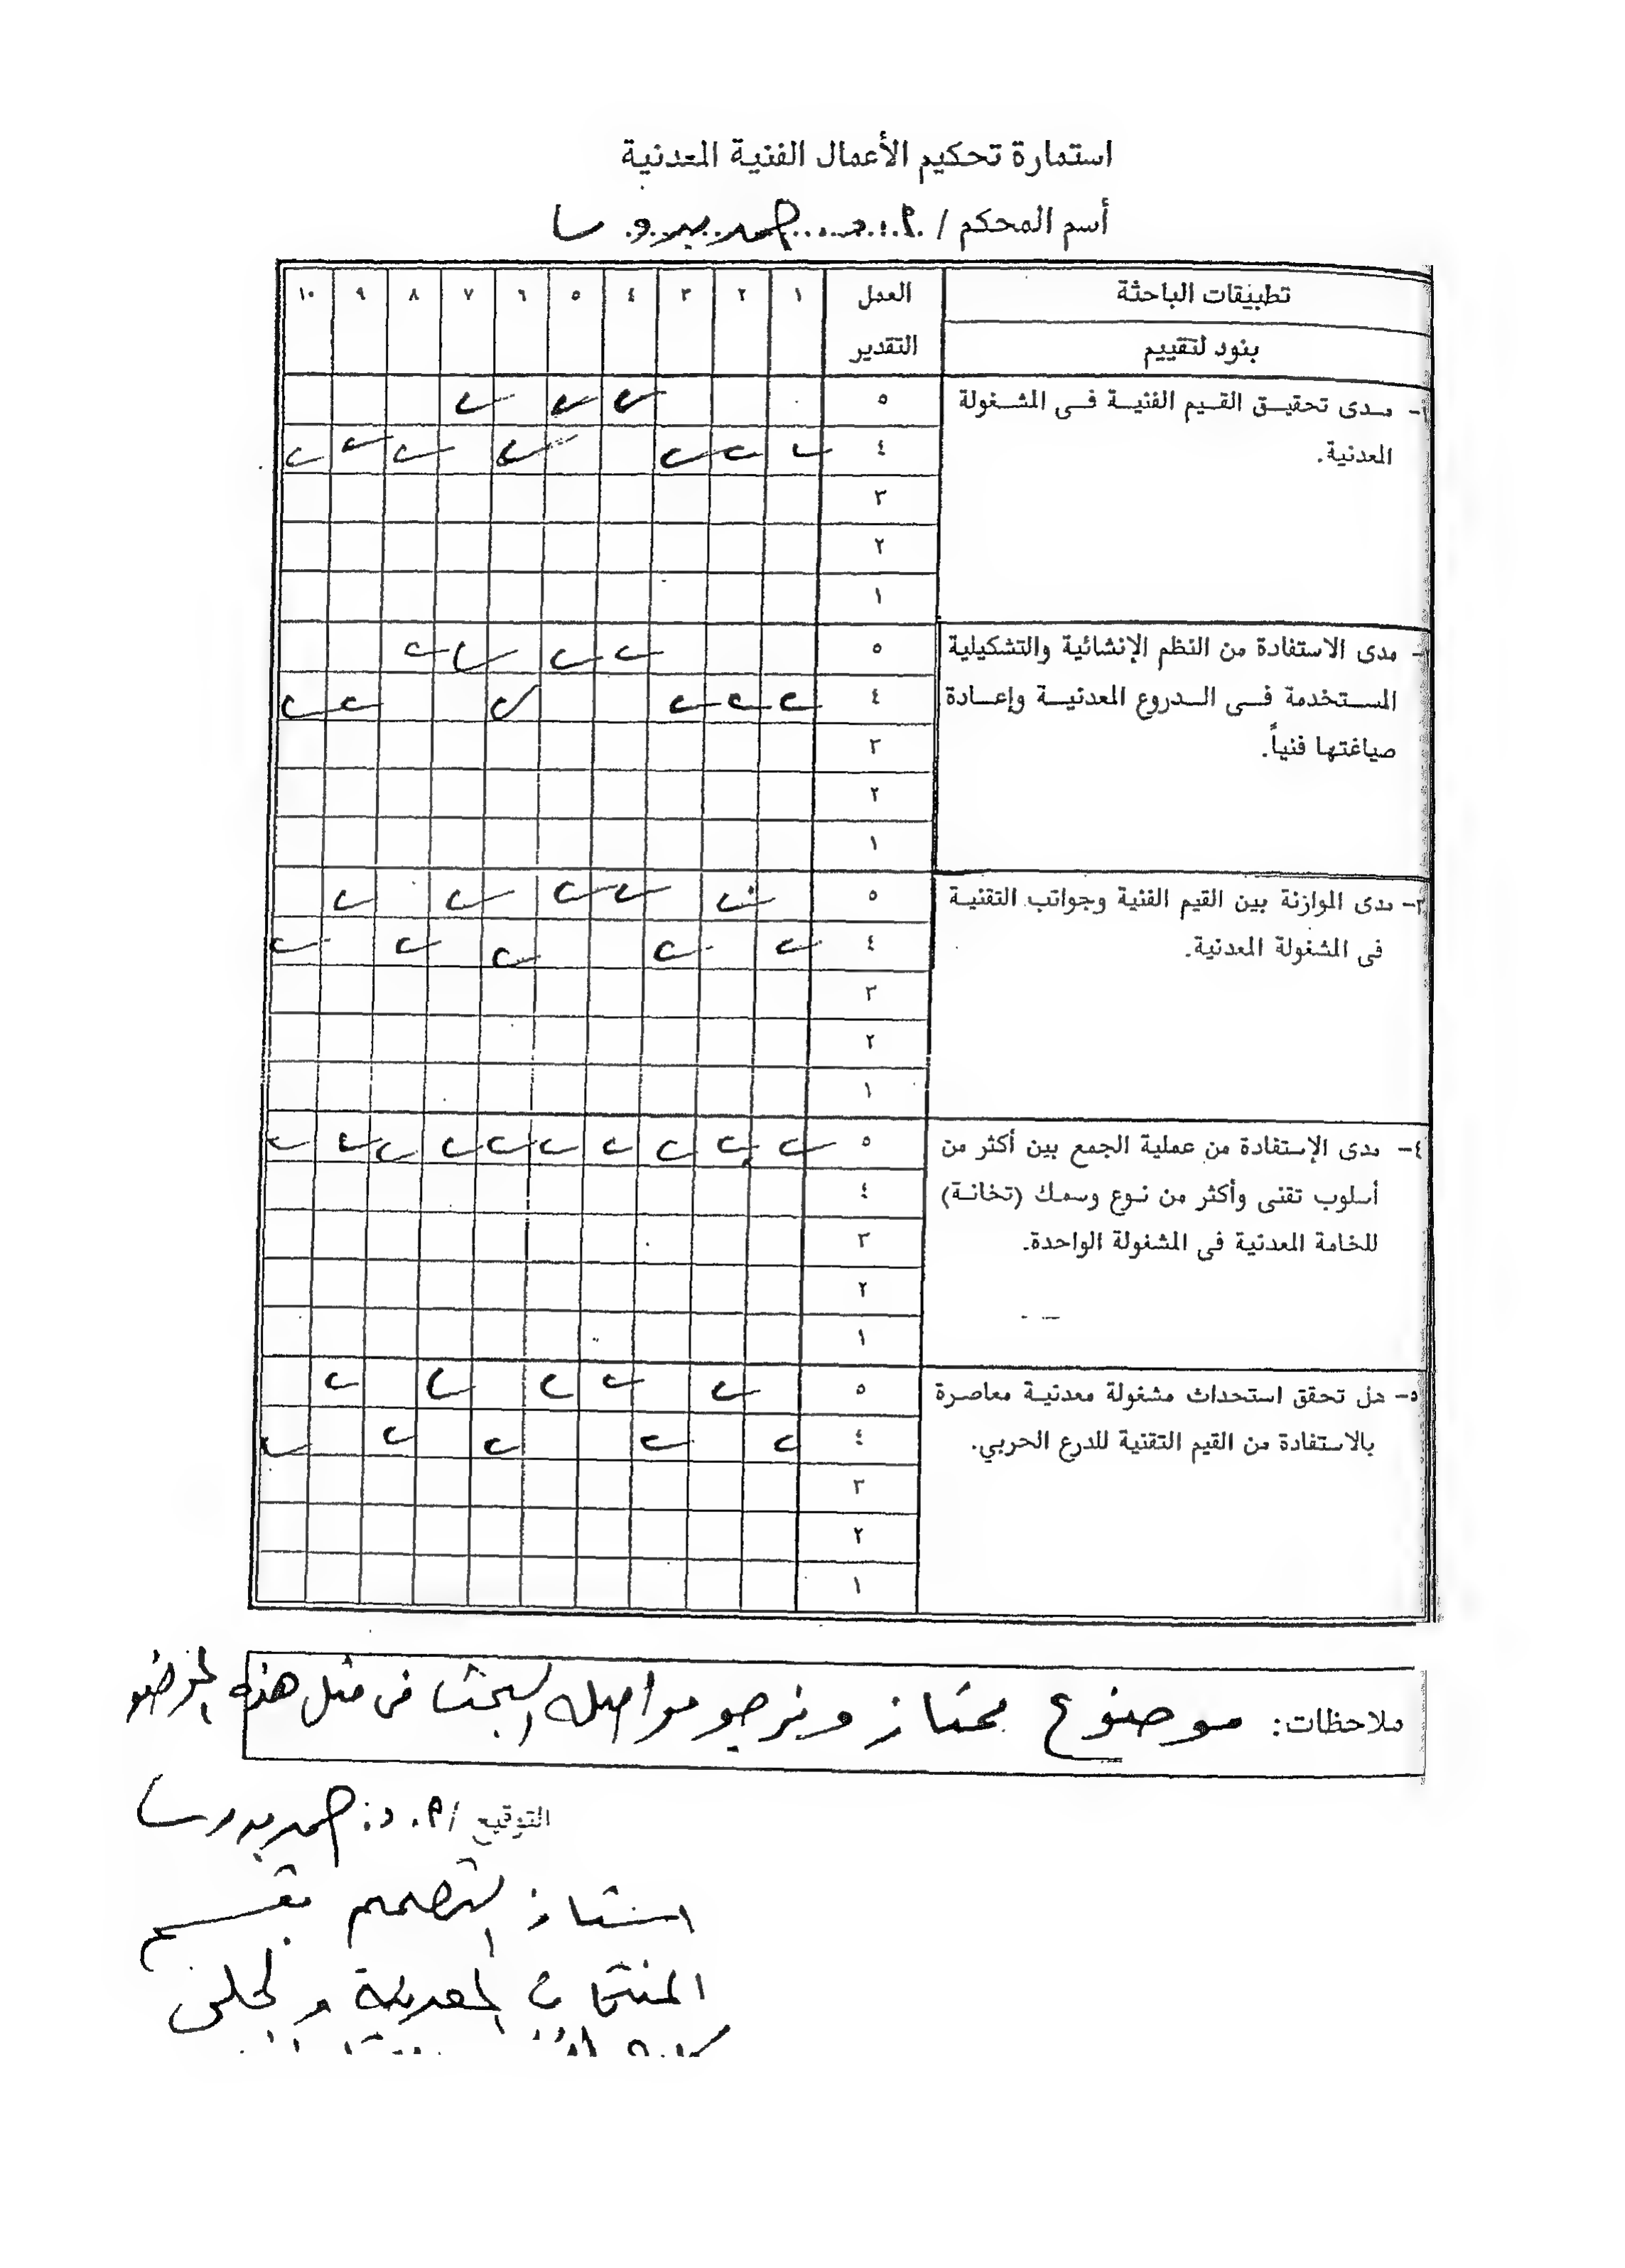 استمارة تحكيم الأعمال الفنية المعدنية
أسم المحكم / أ.د.
تطبيقات الباحثة العمل ١ ٢ ٣ ٤ ٥ ٦ ٧ ٨ ٩ ١٠
بنود لتقييم التقدير
١- مدى تحقيق القيم الفنية فى المشغولة ٥ ✓ ✓ ✓
المعدنية. ٤ ✓ ✓ ✓ ✓ ✓ ✓ ✓
٣
٢
١
- مدى الاستفادة من النظم الإنشائية والتشكيلية ٥ ✓ ✓ ✓ ✓
المستخدمة فى الدروع المعدنية وإعادة ٤ ✓ ✓ ✓ ✓ ✓ ✓
صياغتها فنياً. ٣
٢
١
٣- مدى الموازنة بين القيم الفنية وجوانب التقنية ٥ ✓ ✓ ✓ ✓ ✓
فى المشغولة المعدنية. ٤ ✓ ✓ ✓ ✓ ✓
٣
٢
١
٤- مدى الإستفادة من عملية الجمع بين أكثر من ٥ ✓ ✓ ✓ ✓ ✓ ✓ ✓ ✓ ✓ ✓
أسلوب تقنى وأكثر من نوع وسمك (تخانة) ٤
للخامة المعدنية فى المشغولة الواحدة. ٣
٢
١
٥- هل تحقق استحداث مشغولة معدنية معاصرة ٥ ✓ ✓ ✓ ✓ ✓
بالاستفادة من القيم التقنية للدرع الحربي. ٤ ✓ ✓ ✓ ✓ ✓
٣
٢
١
ملاحظات: موضوع ممتاز ونرجو مواصلة البحث فى مثل هذه
التوقيع / أ.د.
استاذ التصميم بقسم
المنتجات المعدنية والحلى